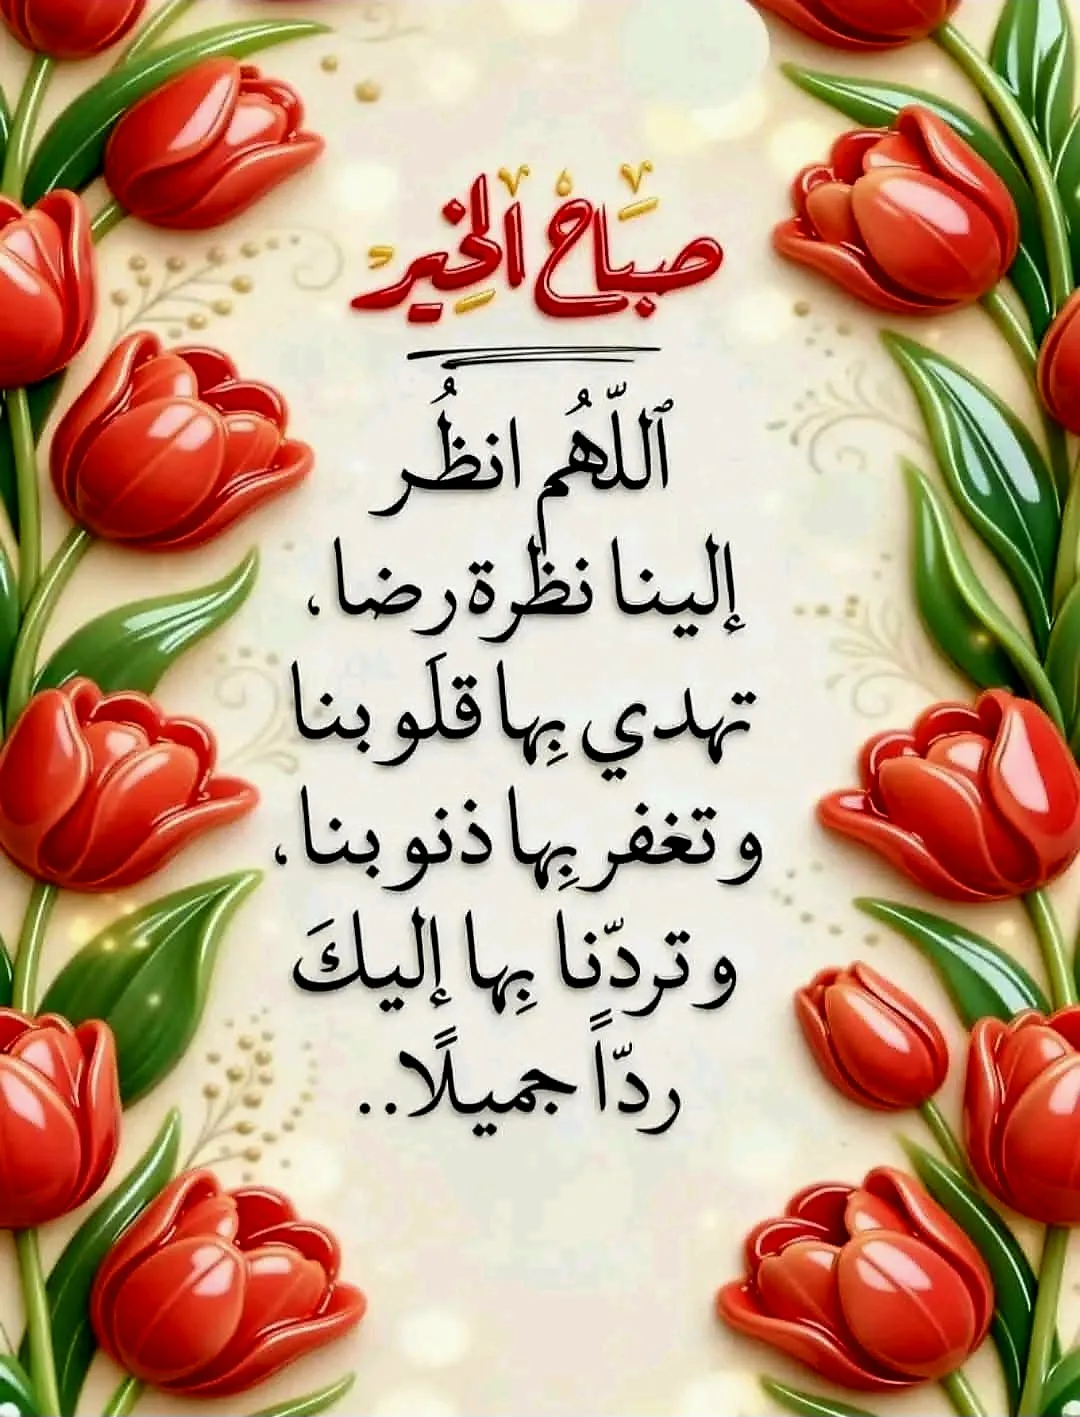 صباح الخير
ٱللّهُم انظُر
إلينا نظرة رضا،
تهدي بِها قلَوبنا
وتغفر بِها ذنوبنا،
وتردّنا بِها إليكَ
ردّاً جميلًا..